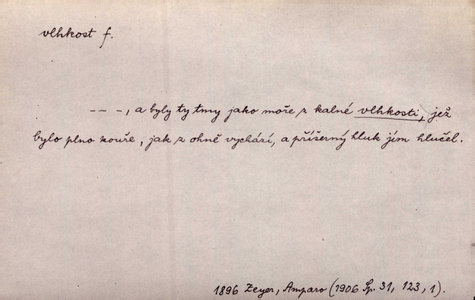 vlhkost f.
– – –, a byly ty tmy jako moře z kalné vlhkosti, jež
bylo plno kouře, jak z ohně vychází, a příšerný hluk jím hlučel.
1896 Zeyer, Amparo (1906 Sp. 31, 123, 1).